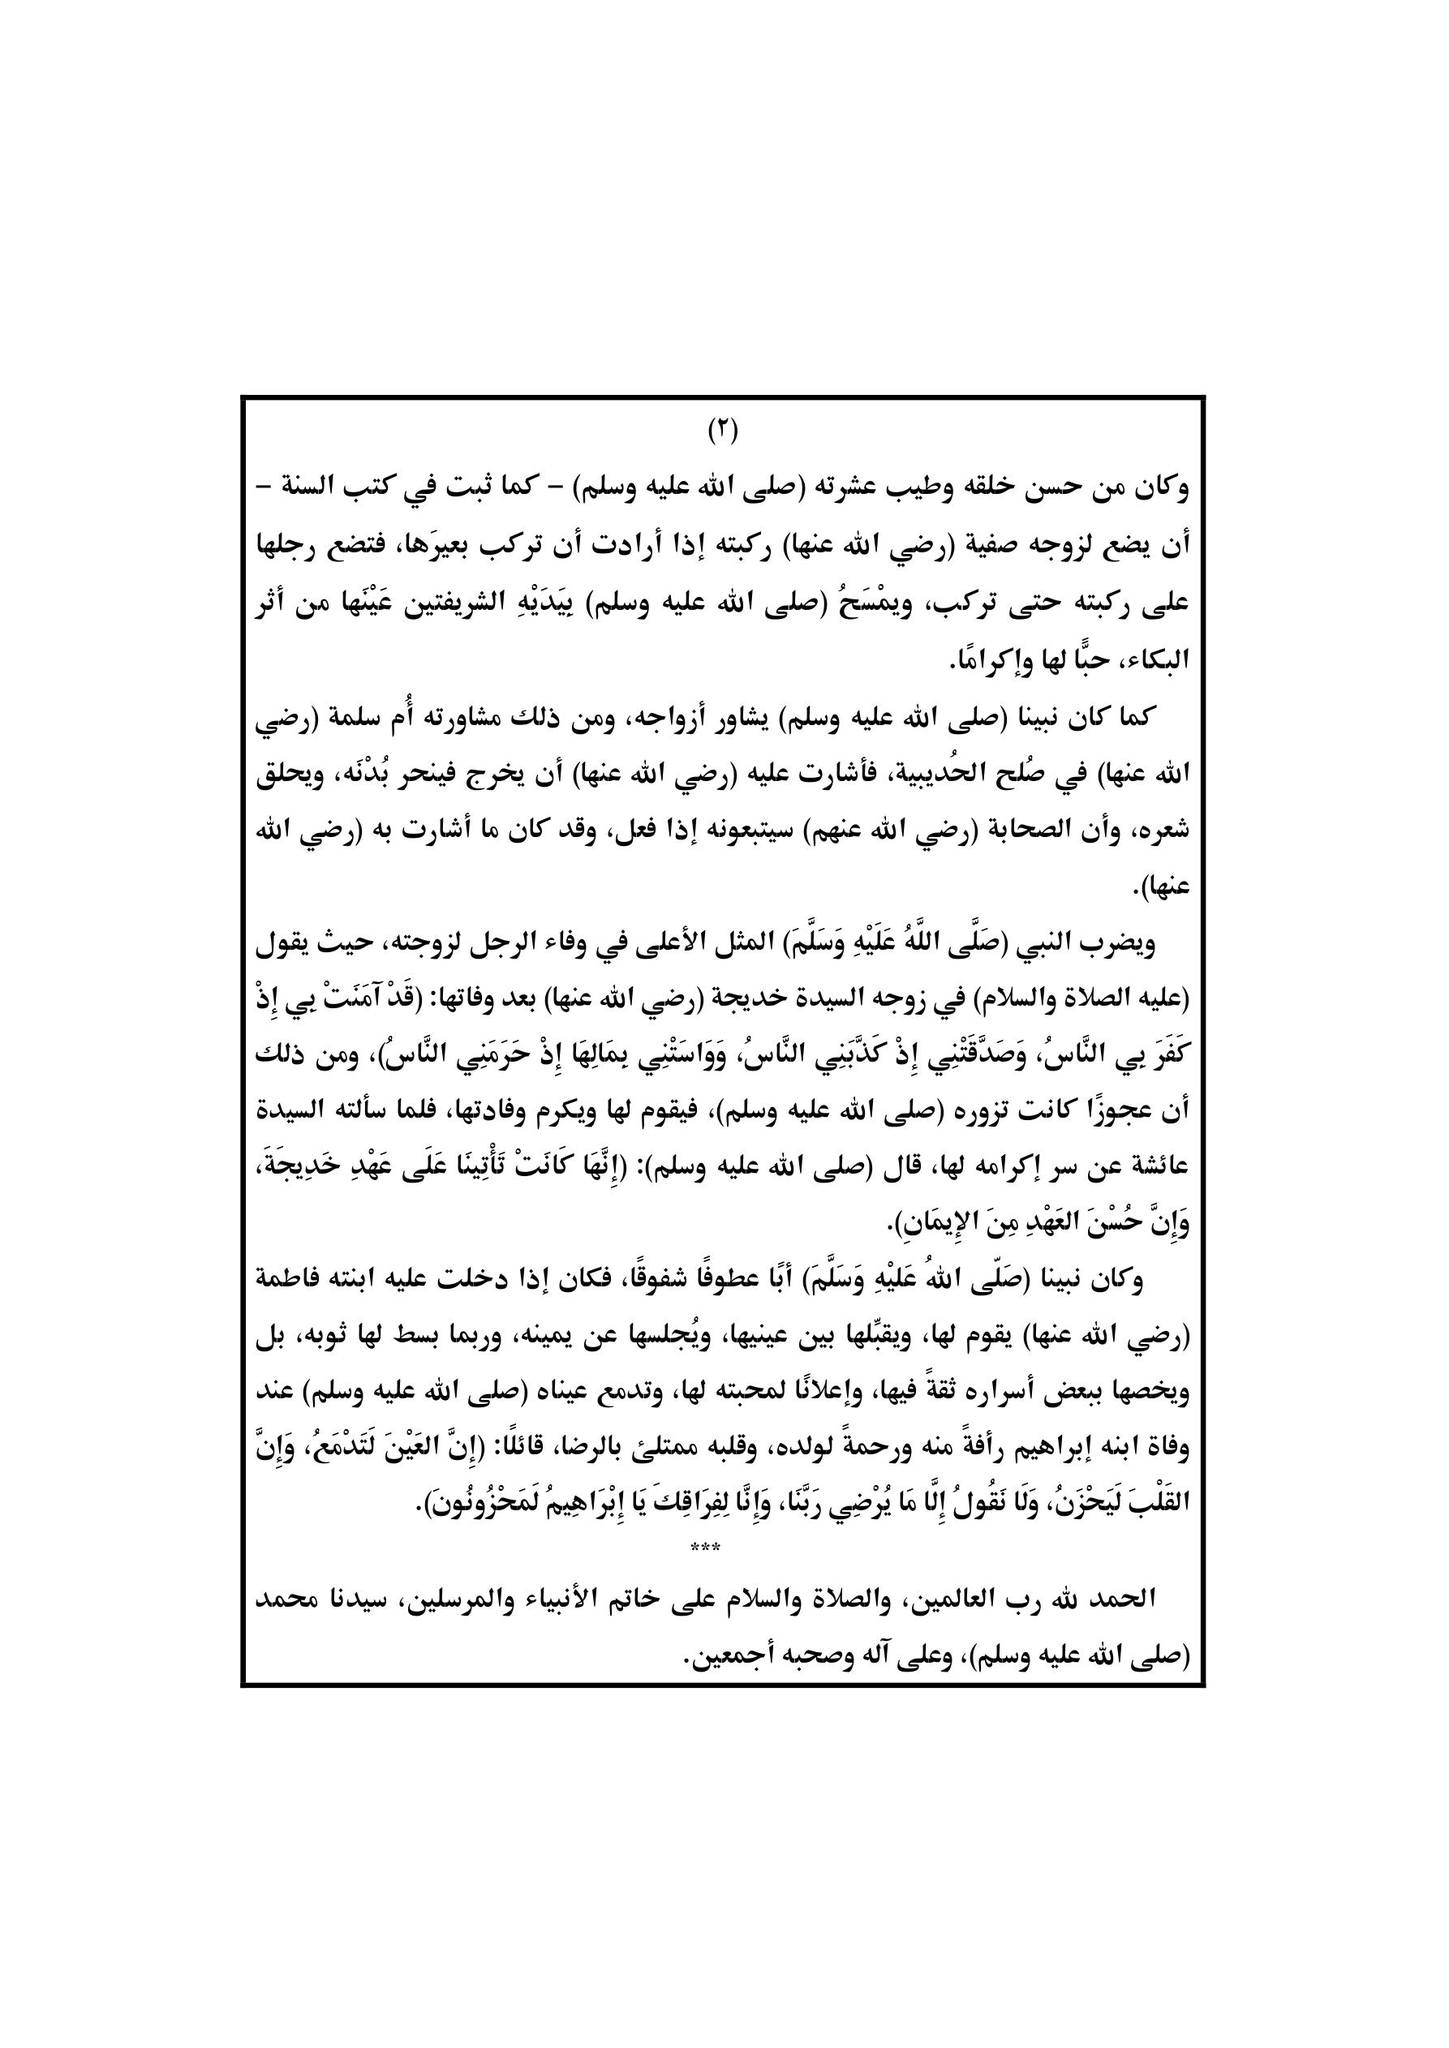 (٢)
وكان من حسن خلقه وطيب عشرته (صلى الله عليه وسلم) – كما ثبت في كتب السنة –
أن يضع لزوجه صفية (رضي الله عنها) ركبته إذا أرادت أن تركب بعيرَها، فتضع رجلها
على ركبته حتى تركب، ويمْسَحُ (صلى الله عليه وسلم) بِيَدَيْهِ الشريفتين عَيْنَها من أثر
البكاء، حبًّا لها وإكرامًا.
كما كان نبينا (صلى الله عليه وسلم) يشاور أزواجه، ومن ذلك مشاورته أُم سلمة (رضي
الله عنها) في صُلح الحُديبية، فأشارت عليه (رضي الله عنها) أن يخرج فينحر بُدْنَه، ويحلق
شعره، وأن الصحابة (رضي الله عنهم) سيتبعونه إذا فعل، وقد كان ما أشارت به (رضي الله
عنها).
ويضرب النبي (صَلَّى اللَّهُ عَلَيْهِ وَسَلَّمَ) المثل الأعلى في وفاء الرجل لزوجته، حيث يقول
(عليه الصلاة والسلام) في زوجه السيدة خديجة (رضي الله عنها) بعد وفاتها: (قَدْ آمَنَتْ بِي إِذْ
كَفَرَ بِي النَّاسُ، وَصَدَّقَتْنِي إِذْ كَذَّبَنِي النَّاسُ، وَوَاسَتْنِي بِمَالِهَا إِذْ حَرَمَنِي النَّاسُ)، ومن ذلك
أن عجوزًا كانت تزوره (صلى الله عليه وسلم)، فيقوم لها ويكرم وفادتها، فلما سألته السيدة
عائشة عن سر إكرامه لها، قال (صلى الله عليه وسلم): (إِنَّهَا كَانَتْ تَأْتِينَا عَلَى عَهْدِ خَدِيجَةَ،
وَإِنَّ حُسْنَ العَهْدِ مِنَ الإِيمَانِ).
وكان نبينا (صَلّى اللهُ عَليْهِ وَسَلَّمَ) أبًا عطوفًا شفوقًا، فكان إذا دخلت عليه ابنته فاطمة
(رضي الله عنها) يقوم لها، ويقبِّلها بين عينيها، ويُجلسها عن يمينه، وربما بسط لها ثوبه، بل
ويخصها ببعض أسراره ثقةً فيها، وإعلانًا لمحبته لها، وتدمع عيناه (صلى الله عليه وسلم) عند
وفاة ابنه إبراهيم رأفةً منه ورحمةً لولده، وقلبه ممتلئ بالرضا، قائلًا: (إِنَّ العَيْنَ لَتَدْمَعُ، وَإِنَّ
القَلْبَ لَيَحْزَنُ، وَلَا نَقُولُ إِلَّا مَا يُرْضِي رَبَّنَا، وَإِنَّا لِفِرَاقِكَ يَا إِبْرَاهِيمُ لَمَحْزُونُونَ).
***
الحمد لله رب العالمين، والصلاة والسلام على خاتم الأنبياء والمرسلين، سيدنا محمد
(صلى الله عليه وسلم)، وعلى آله وصحبه أجمعين.